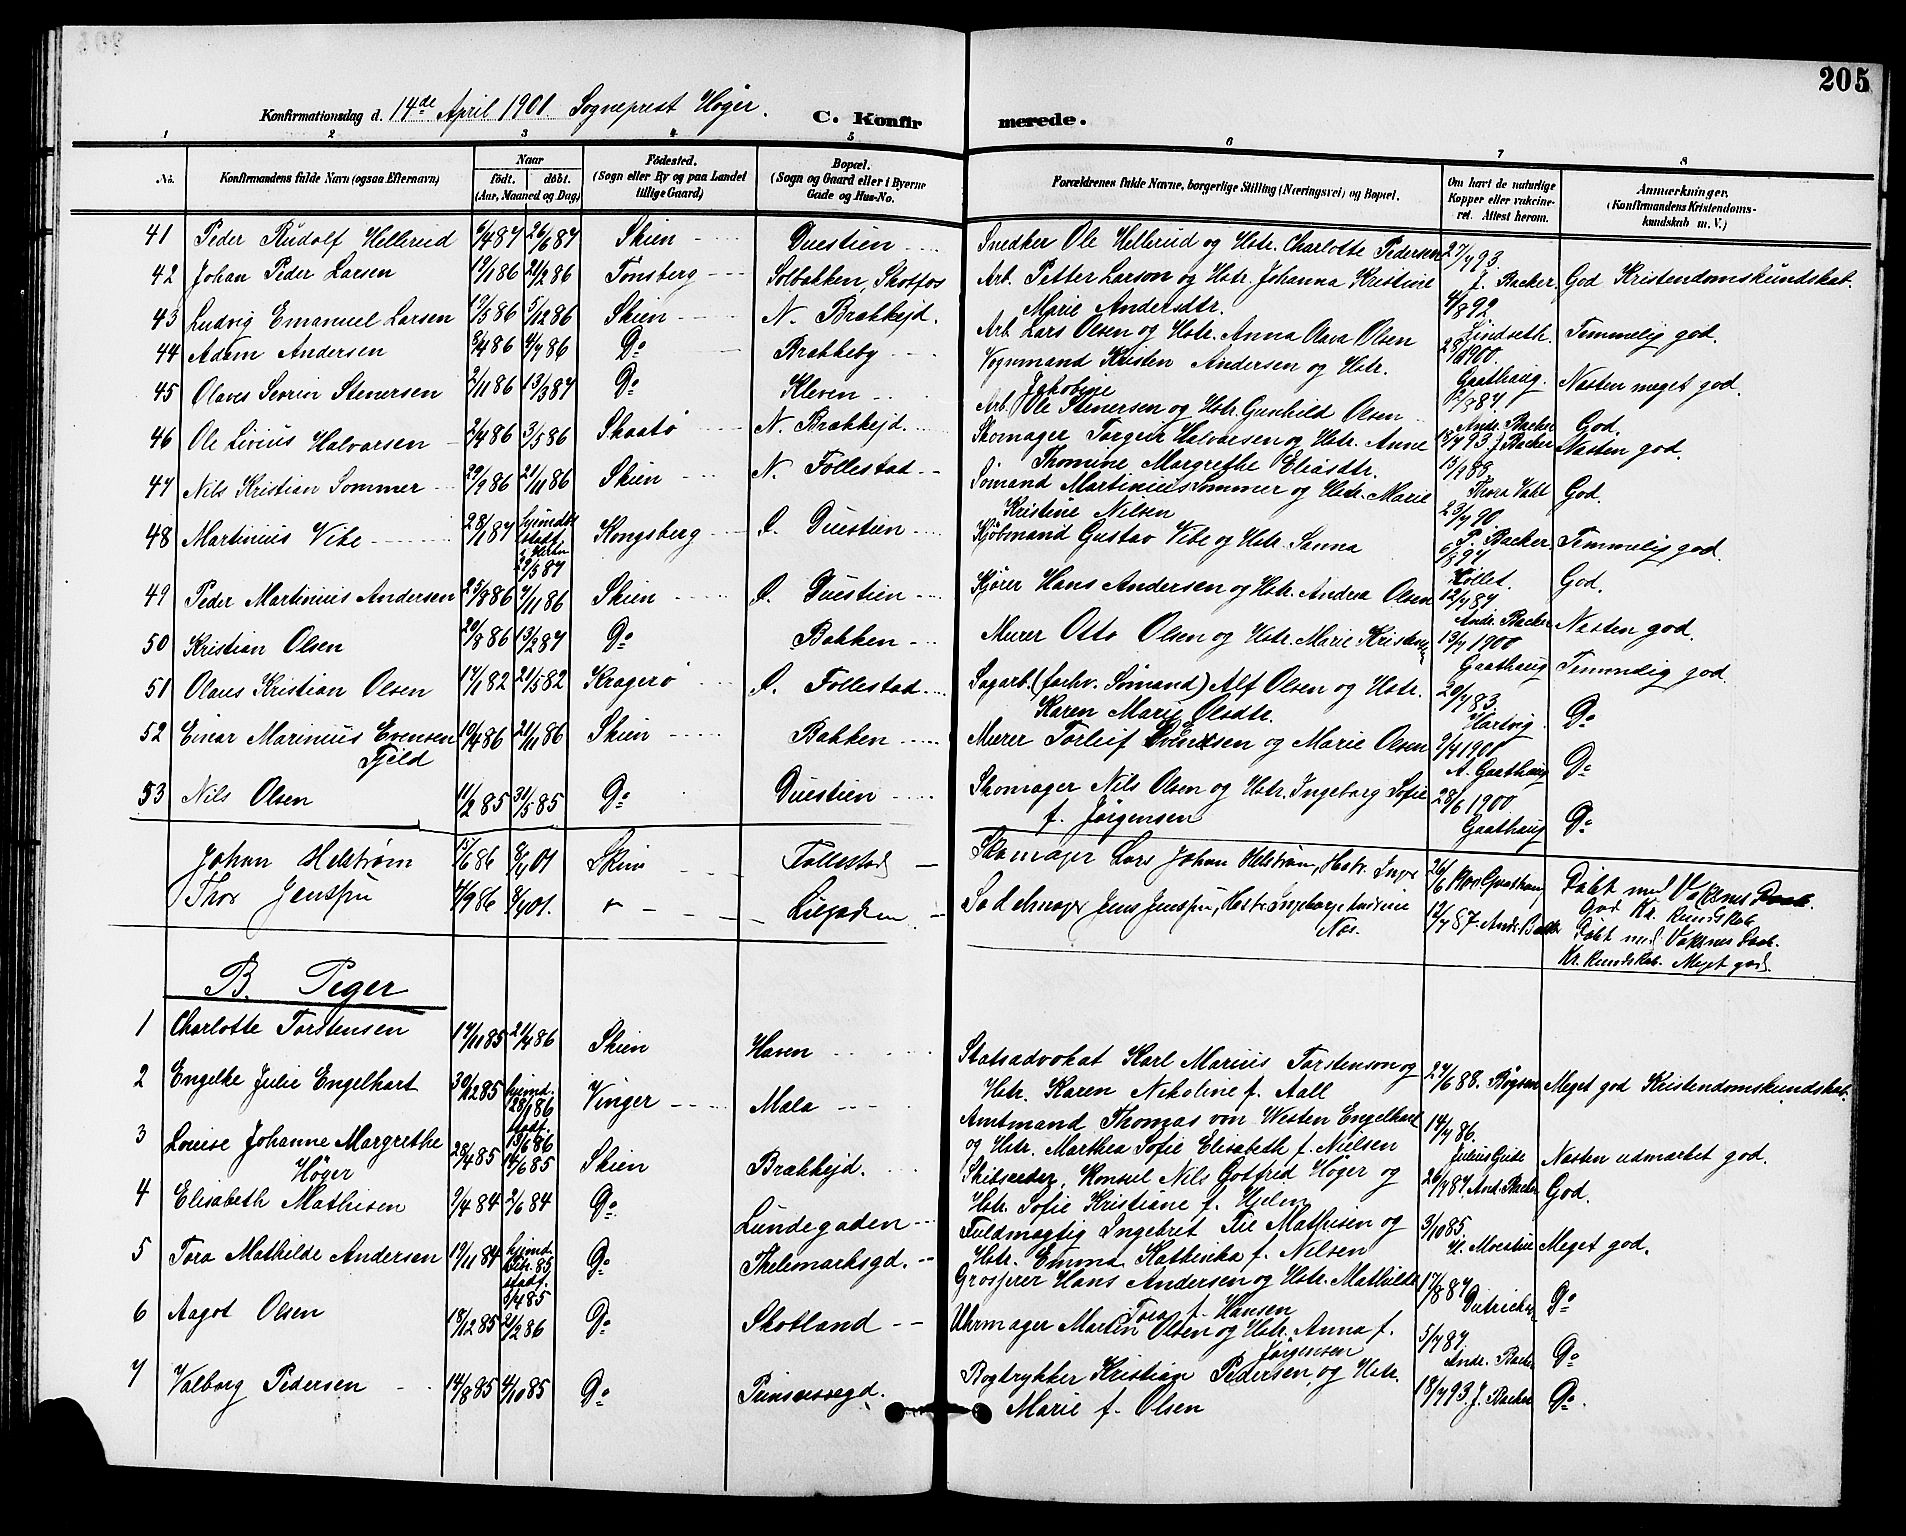 205
Konfirmationsdag d. 14de April 1901 Sogneprest Høger. C. Konfir merede.
1 2 3 4 5 6 7 8
No. Konfirmandens fulde Navn (ogsaa Efternavn) Naar født. døbt. (Aar, Maaned og Dag) Fødested. (Sogn eller By og paa Landet tillige Gaard) Bopæl. (Sogn og Gaard eller i Byerne Gade og Hus-No.) Forældrenes fulde Navne, borgerlige Stilling (Næringsvei) og Bopæl. Om havt de naturlige Kopper eller vakcineret. Attest herom. Anmærkninger. (Konfirmandens Kristendomskundskab m. V.)
41 Peder Rudolf Hellerud 6/4 87 26/6 87 Skien Duestien Snedker Ole Hellerud og Hstr. Charlotte Pedersen 27/7 93 J. Backer
42 Johan Peder Larsen 19/1 86 21/2 86 Tønsberg Solbakken, Skotfos Arb. Petter Larson og Hstr. Johanna Kristine God Kristendomskundskab.
Marie Andersdtr. 4/8 92
43 Ludvig Emanuel Larsen 19/5 86 5/12 86 Skien N. Brækkejd. Arb. Lars Olsen og Hstr. Anna Olava Olsen Lindseth. Temmelig god.
44 Adam Andersen 5/4 86 4/7 86 Do Brækkeby Vognmand Kristen Andersen og Hstr. 1900. Gaathaug.
Jakobine
45 Olaves Severin Stenersen 2/11 86 13/3 87 Do Kleven Arb. Ole Stenersen og Hstr. Gunhild Olsen Andr. Backer Næsten meget god.
46 Ole Livius Halvorsen 2/4 86 3/5 86 Skaatø N. Brækkejd. Skomager Torgeir Halvorsen og Hstr. Anne 18/7 93 J. Backer God.
Thomine Margrethe Eliasdtr. Næsten god.
47 Nils Kristian Sommer 29/9 86 21/11 86 Skien N. Follestad Sømand Martinius Sommer og Hstr. Marie 15/9 88 Thora Vahl God.
Kristine Nilsen
48 Martinius Vibe 28/1 87 29/5 87 Kongsberg Ø. Duestien Kjøbmand Gustav Vibe og Hstr. Sanna 23/7 90 P. Backer Temmelig god.
49 Peder Martinius Andersen 25/8 86 7/11 86 Skien Ø. Duestien Kjører Hans Andersen og Hstr. Andrea Olsen 6/8 94 Kollet. God.
50 Kristian Olsen 20/8 86 13/2 87 Do Bakken Murer Otto Olsen og Hstr. Marie Kristensen 12/7 87 Andr. Backer Næsten god.
51 Olaus Kristian Olsen 17/1 82 21/5 82 Kragerø Ø. Follestad Sagarb. (forhv. Sømand) Alf Olsen og Hstr. 19/7 1900 Gaathaug Temmelig god
Karen Marie Olsdtr. 20/7 83. Hartvig
52 Einar Marinius Evensen 10/4 86 21/11 86 Skien Bakken Murer Torleif Evensen og Marie Olsen 2/4 1901 A. Gaathaug Do
Fjeld
53 Nils Olsen 11/2 85 31/5 85 Do Duestien Skomager Nils Olsen og Hstr. Ingeborg Sofie 28/6 1900 Gaathaug Do
f. Jørgensen Do
Johan Helstrøm 15/6 86 8/4 01 Skien Follestad Skomager Lars Johan Helstrøm, Hstr. Inger 26/6 1900 Gaathaug Døbt med Voksnes Daab.
God Kr. kundskab
Thor Jensen 4/9 86 8/4 01. Lilegaden Sadelmager Jens Jensen, Hstr. Ingeborg Andrine 12/7 87. Andr. Backer Døbt med Voksnes Daab.
Næs. Kr. kundskab. Meget god.
B. Piger
1 Charlotte Torstensen 17/11 85 21/4 86 Skien Haven Statsadvokat Karl Marius Torstenson og
Hstr. Karen Nikoline f. Aall 27/6 88. Bøgsen Meget god Kristendomskundskab.
2 Engelke Julie Engelhart 30/12 85 hjemd. 28/1 86 stadf. 13/6 86 Vinger Mæla Amtmand Thomas von Westen Engelhart 14/7 86.
og Hstr. Marthea Sofie Elisabeth f. Nielsen Julius Gude Næsten udmærket god.
3 Louise Johanne Margrethe 28/4 85 14/6 85 Skien Brækkejd. Skibsreder, Konsul Nils Gotfred Høger og 26/7 87 And. Backer God.
Høger Hstr. Sofie Kristiane f. Hjelm
4 Elisabeth Mathisen 9/4 84 2/6 84 Do Lundegaden Fuldmægtig Ingebret Tie Mathisen og 3/10 85.
Hstr. Emma Kathinka f. Nilsen Meget god.
5 Tora Mathilde Andersen 19/11 84 hjemd. 85 stadf. 3/4 85 Do Thelemarksgd. Grosserer Hans Andersen og Hstr. Mathilde 17/8 87
Tora f. Hansen Do
6 Aagot Olsen 18/12 85 21/2 86 Do Skotland Uhrmager Martin Olsen og Hstr. Anna f. 5/7 87.
Jørgensen Andr. Backer Do
7 Valborg Pedersen 14/8 85 4/10 85 Do Prinsessegd. Bogtrykker Kristian Pedersen og Hstr. 18/7 93. J. Backer Do.
Marie f. Olsen